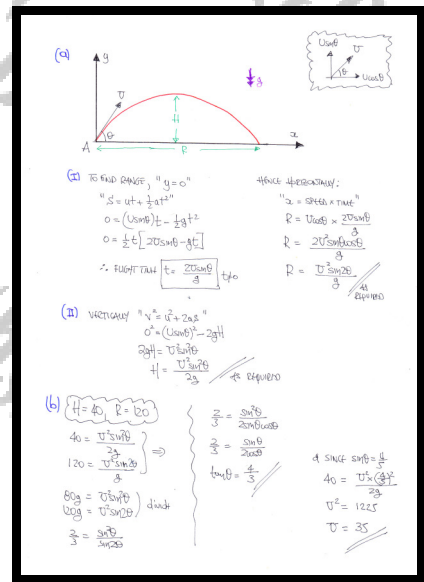 (a)
y
U
θ
A
H
R
x
g
Usinθ
U
θ
Ucosθ
(I) TO FIND RANGE, "y=0"
"S = ut + ½at²"
0 = (Usinθ)t - ½gt²
0 = ½t[2Usinθ - gt]
∴ FLIGHT TIME t = 2Usinθ/g t≠0
HENCE HORIZONTALLY:
"x = SPEED × TIME"
R = Ucosθ × 2Usinθ/g
R = 2U²sinθcosθ/g
R = U²sin2θ/g
AS REQUIRED
(II) VERTICALLY "v² = u² + 2as"
0² = (Usinθ)² - 2gH
2gH = U²sin²θ
H = U²sin²θ/2g
AS REQUIRED
(b) H = 40, R = 120
40 = U²sin²θ/2g
120 = U²sin2θ/g
⇒
80g = U²sin²θ
120g = U²sin2θ
divide
2/3 = sin²θ/sin2θ
2/3 = sin²θ/2sinθcosθ
2/3 = sinθ/2cosθ
tanθ = 4/3
& SINCE sinθ = 4/5
40 = U²×(4/5)²/2g
U² = 1225
U = 35